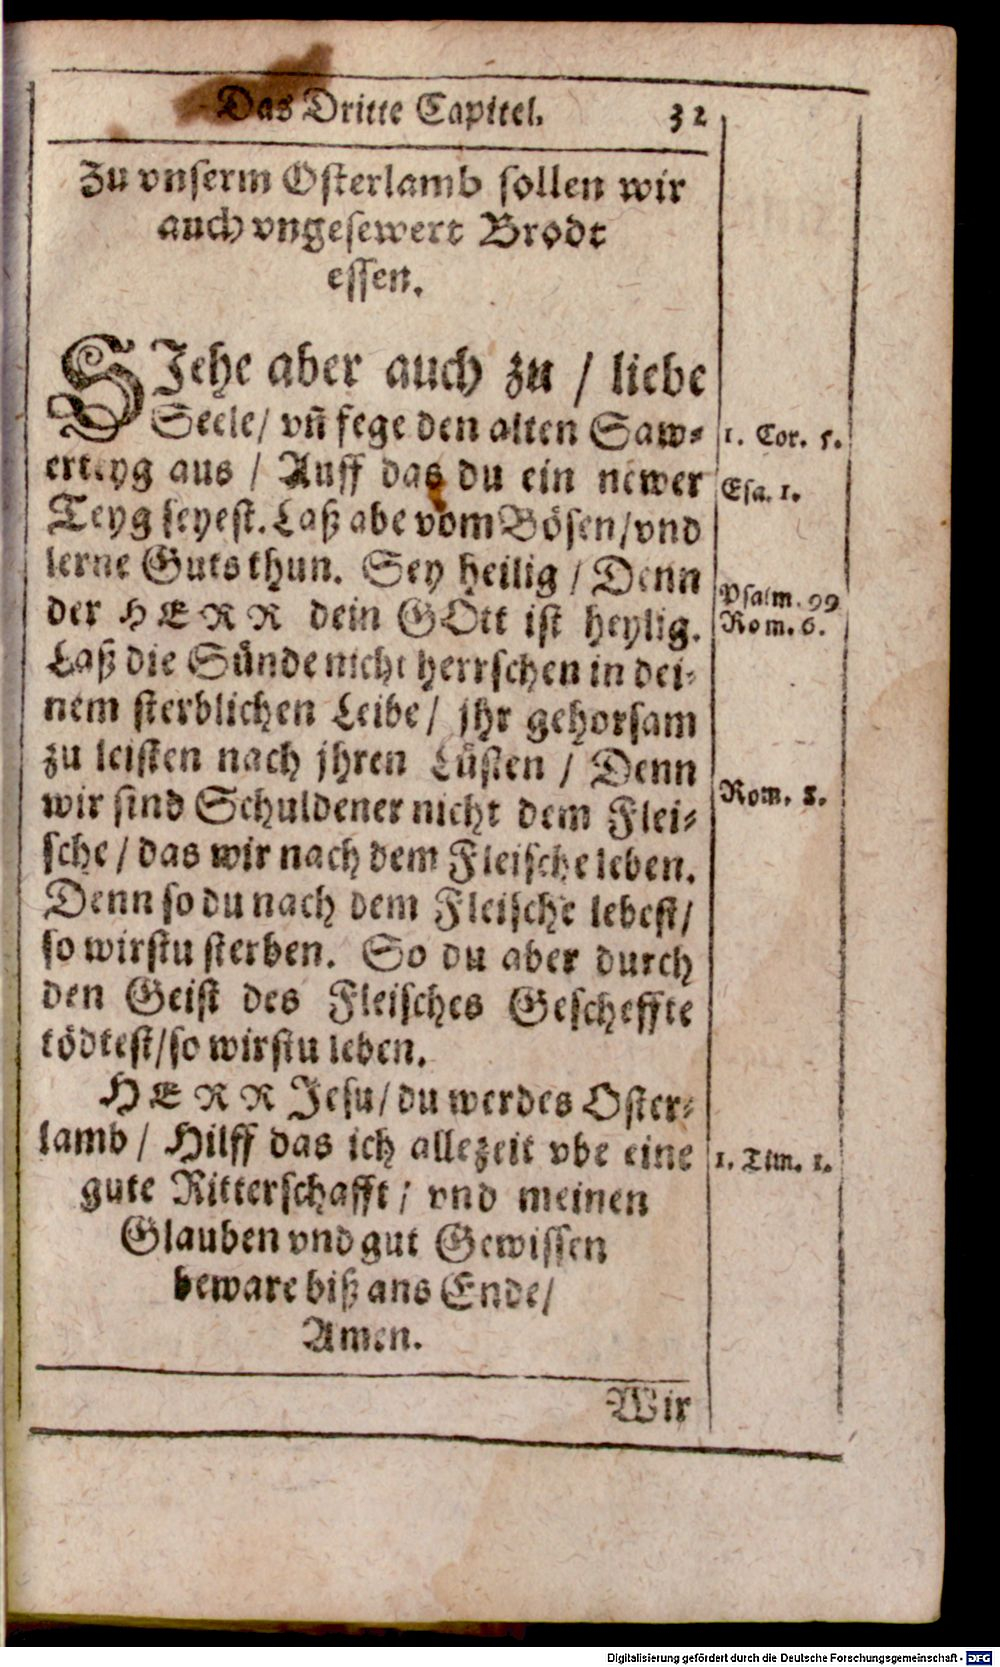 Das Dritte Capitel. 32
Zu vnserm Osterlamb sollen wir
auch vngesewert Brodt
essen.
SJehe aber auch zu / liebe
Seele / vñ fege den alten Saw-
erteyg aus / Auff das du ein newer
Teyg seyest. Laß abe vom Bösen / vnd
lerne Guts thun. Sey heilig / Denn
der HERR dein GOtt ist heylig.
Laß die Sünde nicht herrschen in dei-
nem sterblichen Leibe / jhr gehorsam
zu leisten nach jhren Lüsten / Denn
wir sind Schuldener nicht dem Flei-
sche / das wir nach dem Fleische leben.
Denn so du nach dem Fleische lebest /
so wirstu sterben. So du aber durch
den Geist des Fleisches Gescheffte
tödtest / so wirstu leben.
HERR Jesu / du werdes Oster-
lamb / Hilff das ich allezeit vbe eine
gute Ritterschafft / vnd meinen
Glauben vnd gut Gewissen
beware biß ans Ende /
Amen.
Wir
1. Cor. 5.
Esa. 1.
Psalm. 99
Rom. 6.
Rom. 8.
1. Tim. 1.
Digitalisierung gefördert durch die Deutsche Forschungsgemeinschaft - DFG